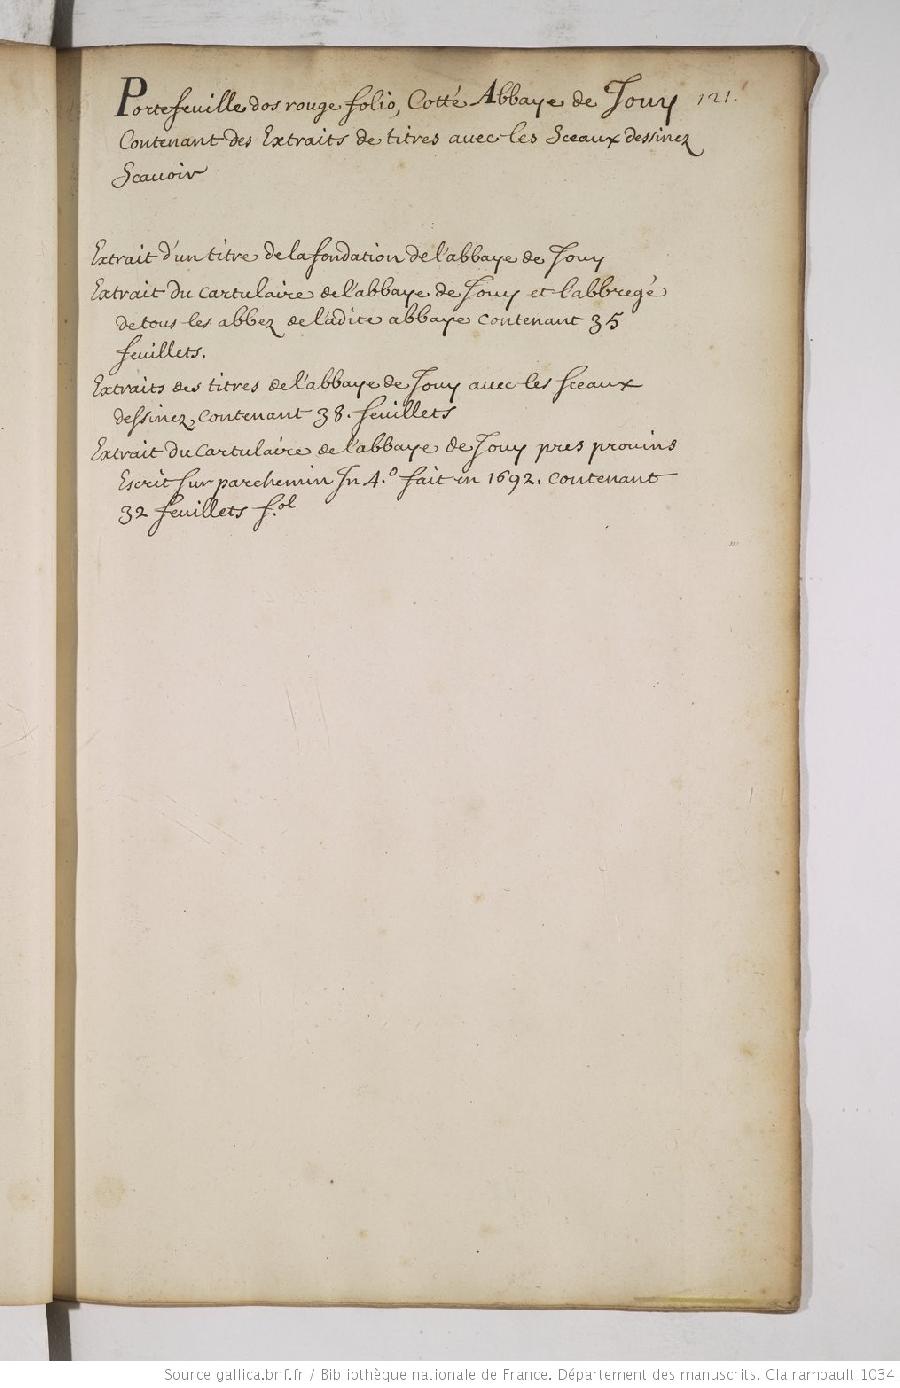 Portefeuille dos rouge folio, Cotté Abbaye de Jouy 121.
Contenant des Extraits de titres avec les Sceaux dessinez
Scauoir
Extrait d'un titre de la fondation de l'abbaye de Jouy
Extrait du cartulaire de l'abbaye de Jouy et l'abbregé
de tous les abbez de ladite abbaye contenant 35
feuillets.
Extraits des titres de l'abbaye de Jouy auec les sceaux
dessinez, contenant 38. feuillets
Extrait du cartulaire de l'abbaye de Jouy pres prouins
Escrit sur parchemin In 4.º fait en 1692. contenant
32 feuillets f.ol
Source gallica.bnf.fr / Bibliothèque nationale de France. Département des manuscrits. Clairambault 1034